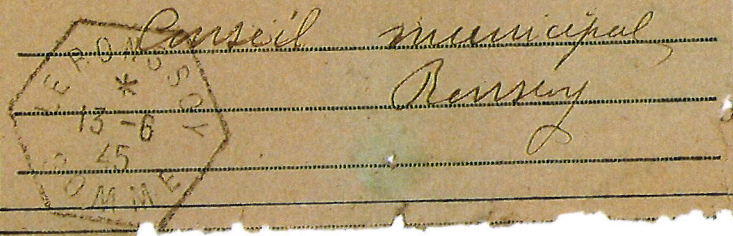 Conseil municipal,
Ronssoy
LE RONSSOY
*
13 -6
45
SOMME